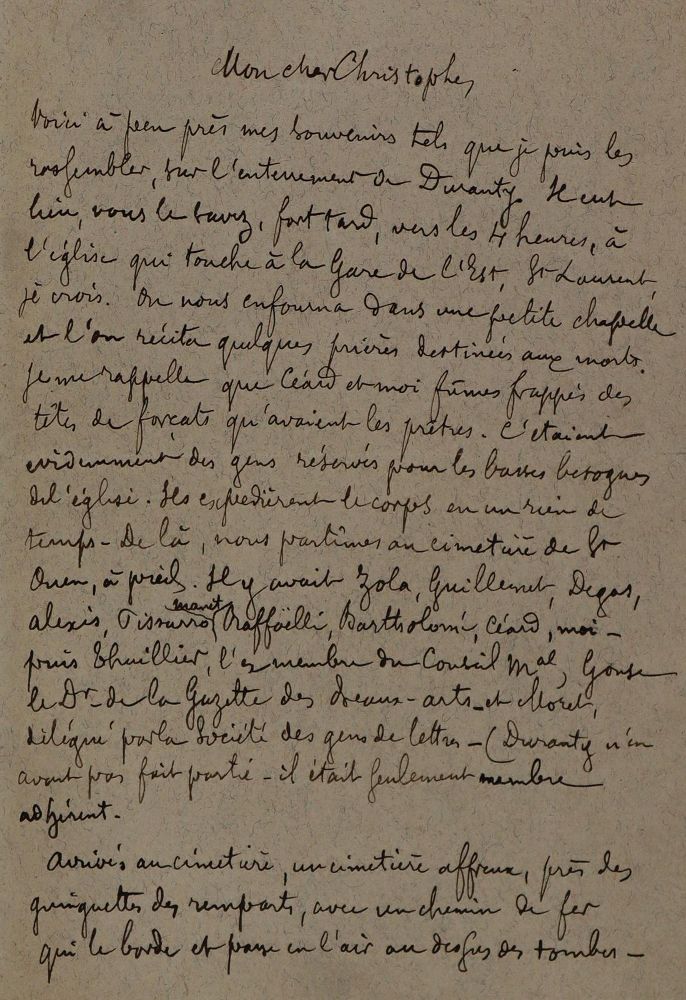 Mon cher Christophe,
Voici à peu près mes souvenirs tels que je puis les
rassembler, sur l'enterrement de Duranty. Il eut
lieu, vous le savez, fort tard, vers les 4 heures, à
l'église qui touche à la Gare de l'Est, St Laurent,
je crois. On nous enfourna dans une petite chapelle
et l'on récita quelques prières destinées aux morts.
Je me rappelle que Céard et moi fûmes frappés des
têtes de forçats qu'avaient les prêtres. C'étaient
evidemment des gens réservés pour les basses besognes
de l'église. Ils expédièrent le corps en un rien de
temps - De là, nous partîmes au cimetière de St
Ouen, à pied. Il y avait Zola, Guillemet, Degas,
manet
Alexis, Pissarro, Raffaëlli, Bartholomé, Céard, moi -
puis Thuillier, l'ex membre du Conseil Mal, Gonse
le Dr de la Gazette des beaux-arts - et Moret,
délégué par la Société des gens de lettres - (Duranty n'en
avait pas fait partie - il était seulement membre
adhérent -
Arrivés au cimetière, un cimetière affreux, près des
guinguettes des remparts, avec un chemin de fer
qui le borde et passe en l'air au dessus des tombes -